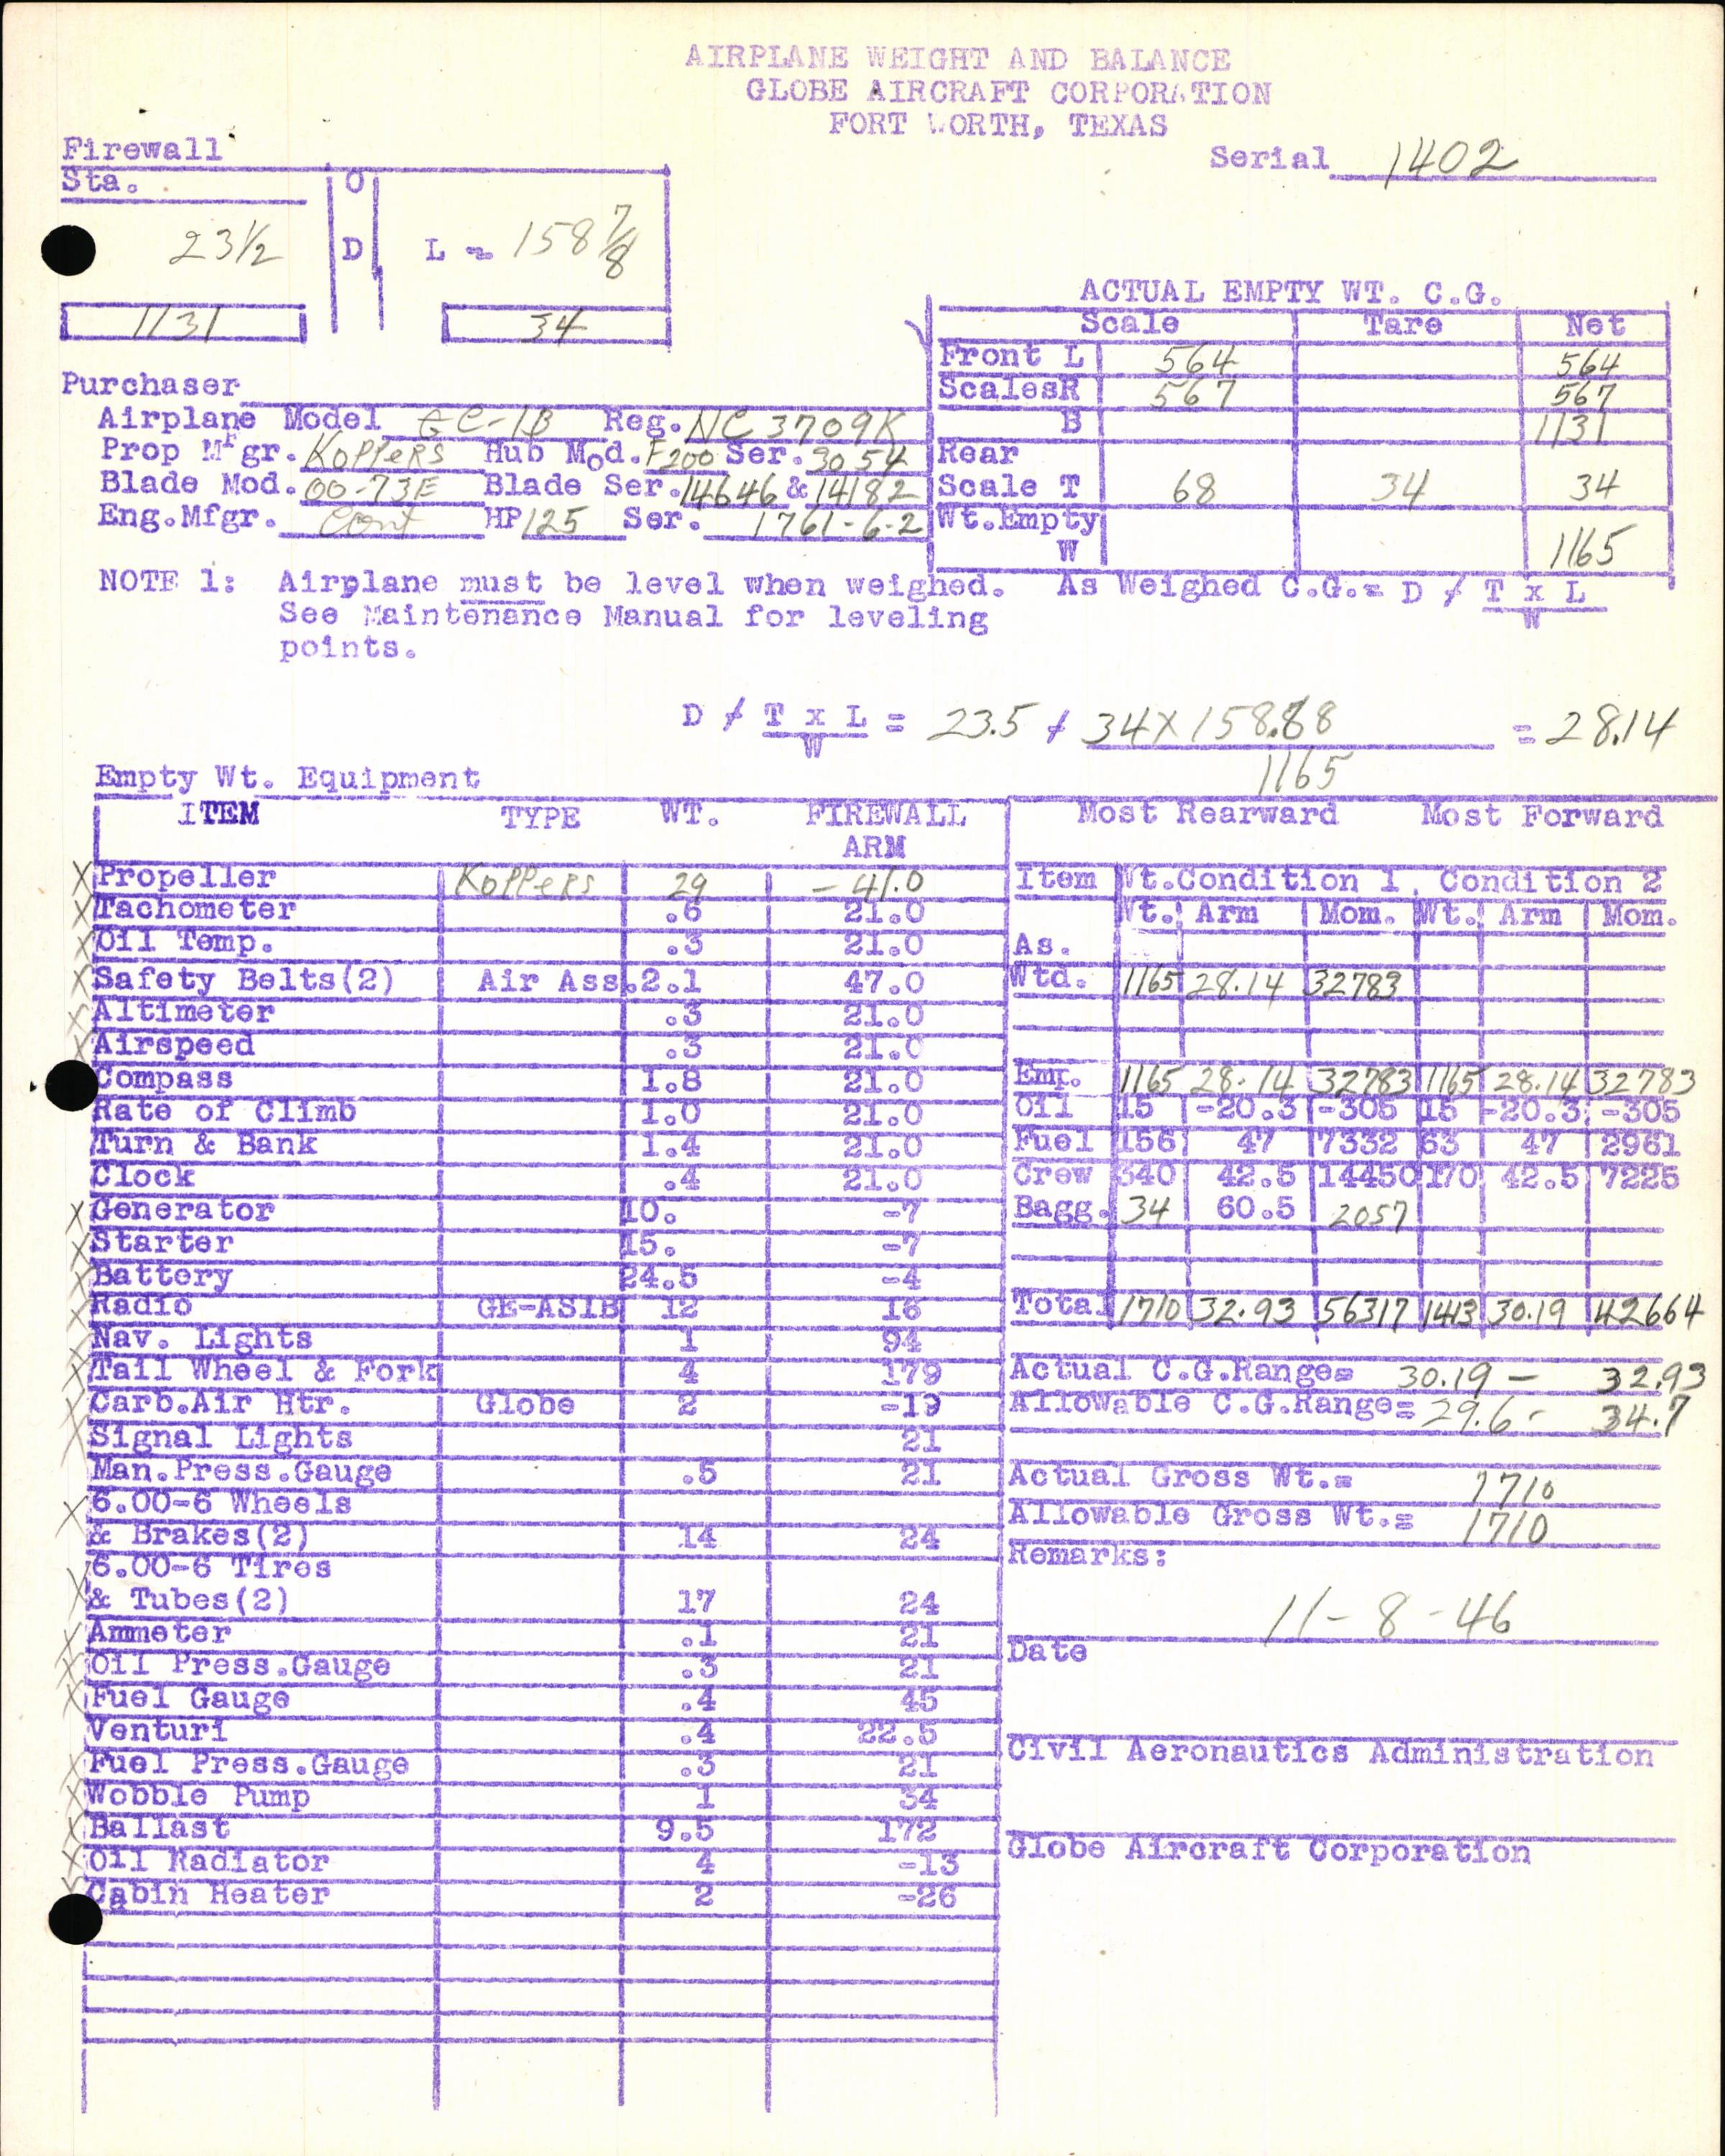 AIRPLANE WEIGHT AND BALANCE
GLOBE AIRCRAFT CORPORATION
FORT WORTH, TEXAS
Serial 1402
Firewall
Sta. O
23½ D L = 158 7/8
1131 34
ACTUAL EMPTY WT. C.G.
Scale Tare Net
Front L 564 564
Scales R 567 567
B 1131
Rear
Scale T 68 34 34
Wt.Empty
W 1165
Purchaser
Airplane Model GC-1B Reg. NC 3709K
Prop Mfgr. KOPPERS Hub Mod. F200 Ser. 3054
Blade Mod. 00-73E Blade Ser. 14646 & 14182
Eng.Mfgr. Cont HP 125 Ser. 1761-6-2
NOTE 1: Airplane must be level when weighed. As Weighed C.G.= D ≠ T x L
W
See Maintenance Manual for leveling
points.
D ≠ T x L = 23.5 + 34 X 158.88 = 28.14
W 1165
Empty Wt. Equipment
ITEM TYPE WT. FIREWALL
ARM
X Propeller KOPPERS 29 -41.0
X Tachometer .6 21.0
X Oil Temp. .3 21.0
X Safety Belts(2) Air Ass. 2.1 47.0
X Altimeter .3 21.0
X Airspeed .3 21.0
Compass 1.8 21.0
Rate of Climb 1.0 21.0
Turn & Bank 1.4 21.0
Clock .4 21.0
X Generator 10. -7
X Starter 15. -7
X Battery 24.5 -4
X Radio GE-AS1B 12 16
X Nav. Lights 1 94
X Tail Wheel & Fork 4 179
X Carb.Air Htr. Globe 2 -19
X Signal Lights 21
Man.Press.Gauge .5 21
X 6.00-6 Wheels
& Brakes(2) 14 24
X 6.00-6 Tires
& Tubes(2) 17 24
X Ammeter .1 21
X Oil Press.Gauge .3 21
X Fuel Gauge .4 45
Venturi .4 22.5
X Fuel Press.Gauge .3 21
X Wobble Pump 1 34
X Ballast 9.5 172
X Oil Radiator 4 -13
X Cabin Heater 2 -26
Most Rearward Most Forward
Item Wt.Condition 1, Condition 2
Wt. Arm Mom. Wt. Arm Mom.
As.
Wtd. 1165 28.14 32783
Emp. 1165 28.14 32783 1165 28.14 32783
Oil 15 -20.3 -305 15 -20.3 -305
Fuel 156 47 7332 63 47 2961
Crew 340 42.5 14450 170 42.5 7225
Bagg. 34 60.5 2057
Total 1710 32.93 56317 1413 30.19 42664
Actual C.G.Range= 30.19 - 32.93
Allowable C.G.Range= 29.6 - 34.7
Actual Gross Wt.= 1710
Allowable Gross Wt.= 1710
Remarks:
11-8-46
Date
Civil Aeronautics Administration
Globe Aircraft Corporation